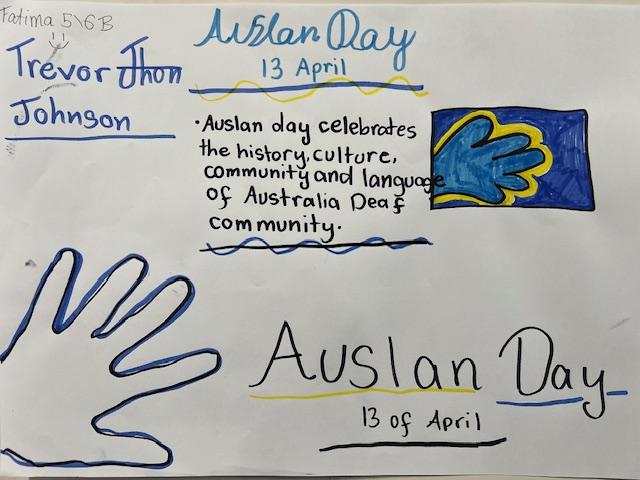 Fatima 5\6B
Trevor Jhon
Johnson
Auslan Day
13 April
· Auslan day celebrates
the history, culture,
community and language
of Australia Deaf
community.
Auslan Day
13 of April